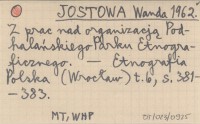 JOSTOWA Wanda 1962.
Z prac nad organizacją Pod-
halańskiego Parku Etnogra-
ficznego. — Etnografia
Polska (Wrocław) t. 6, s. 381-
-383.
MT, WHP